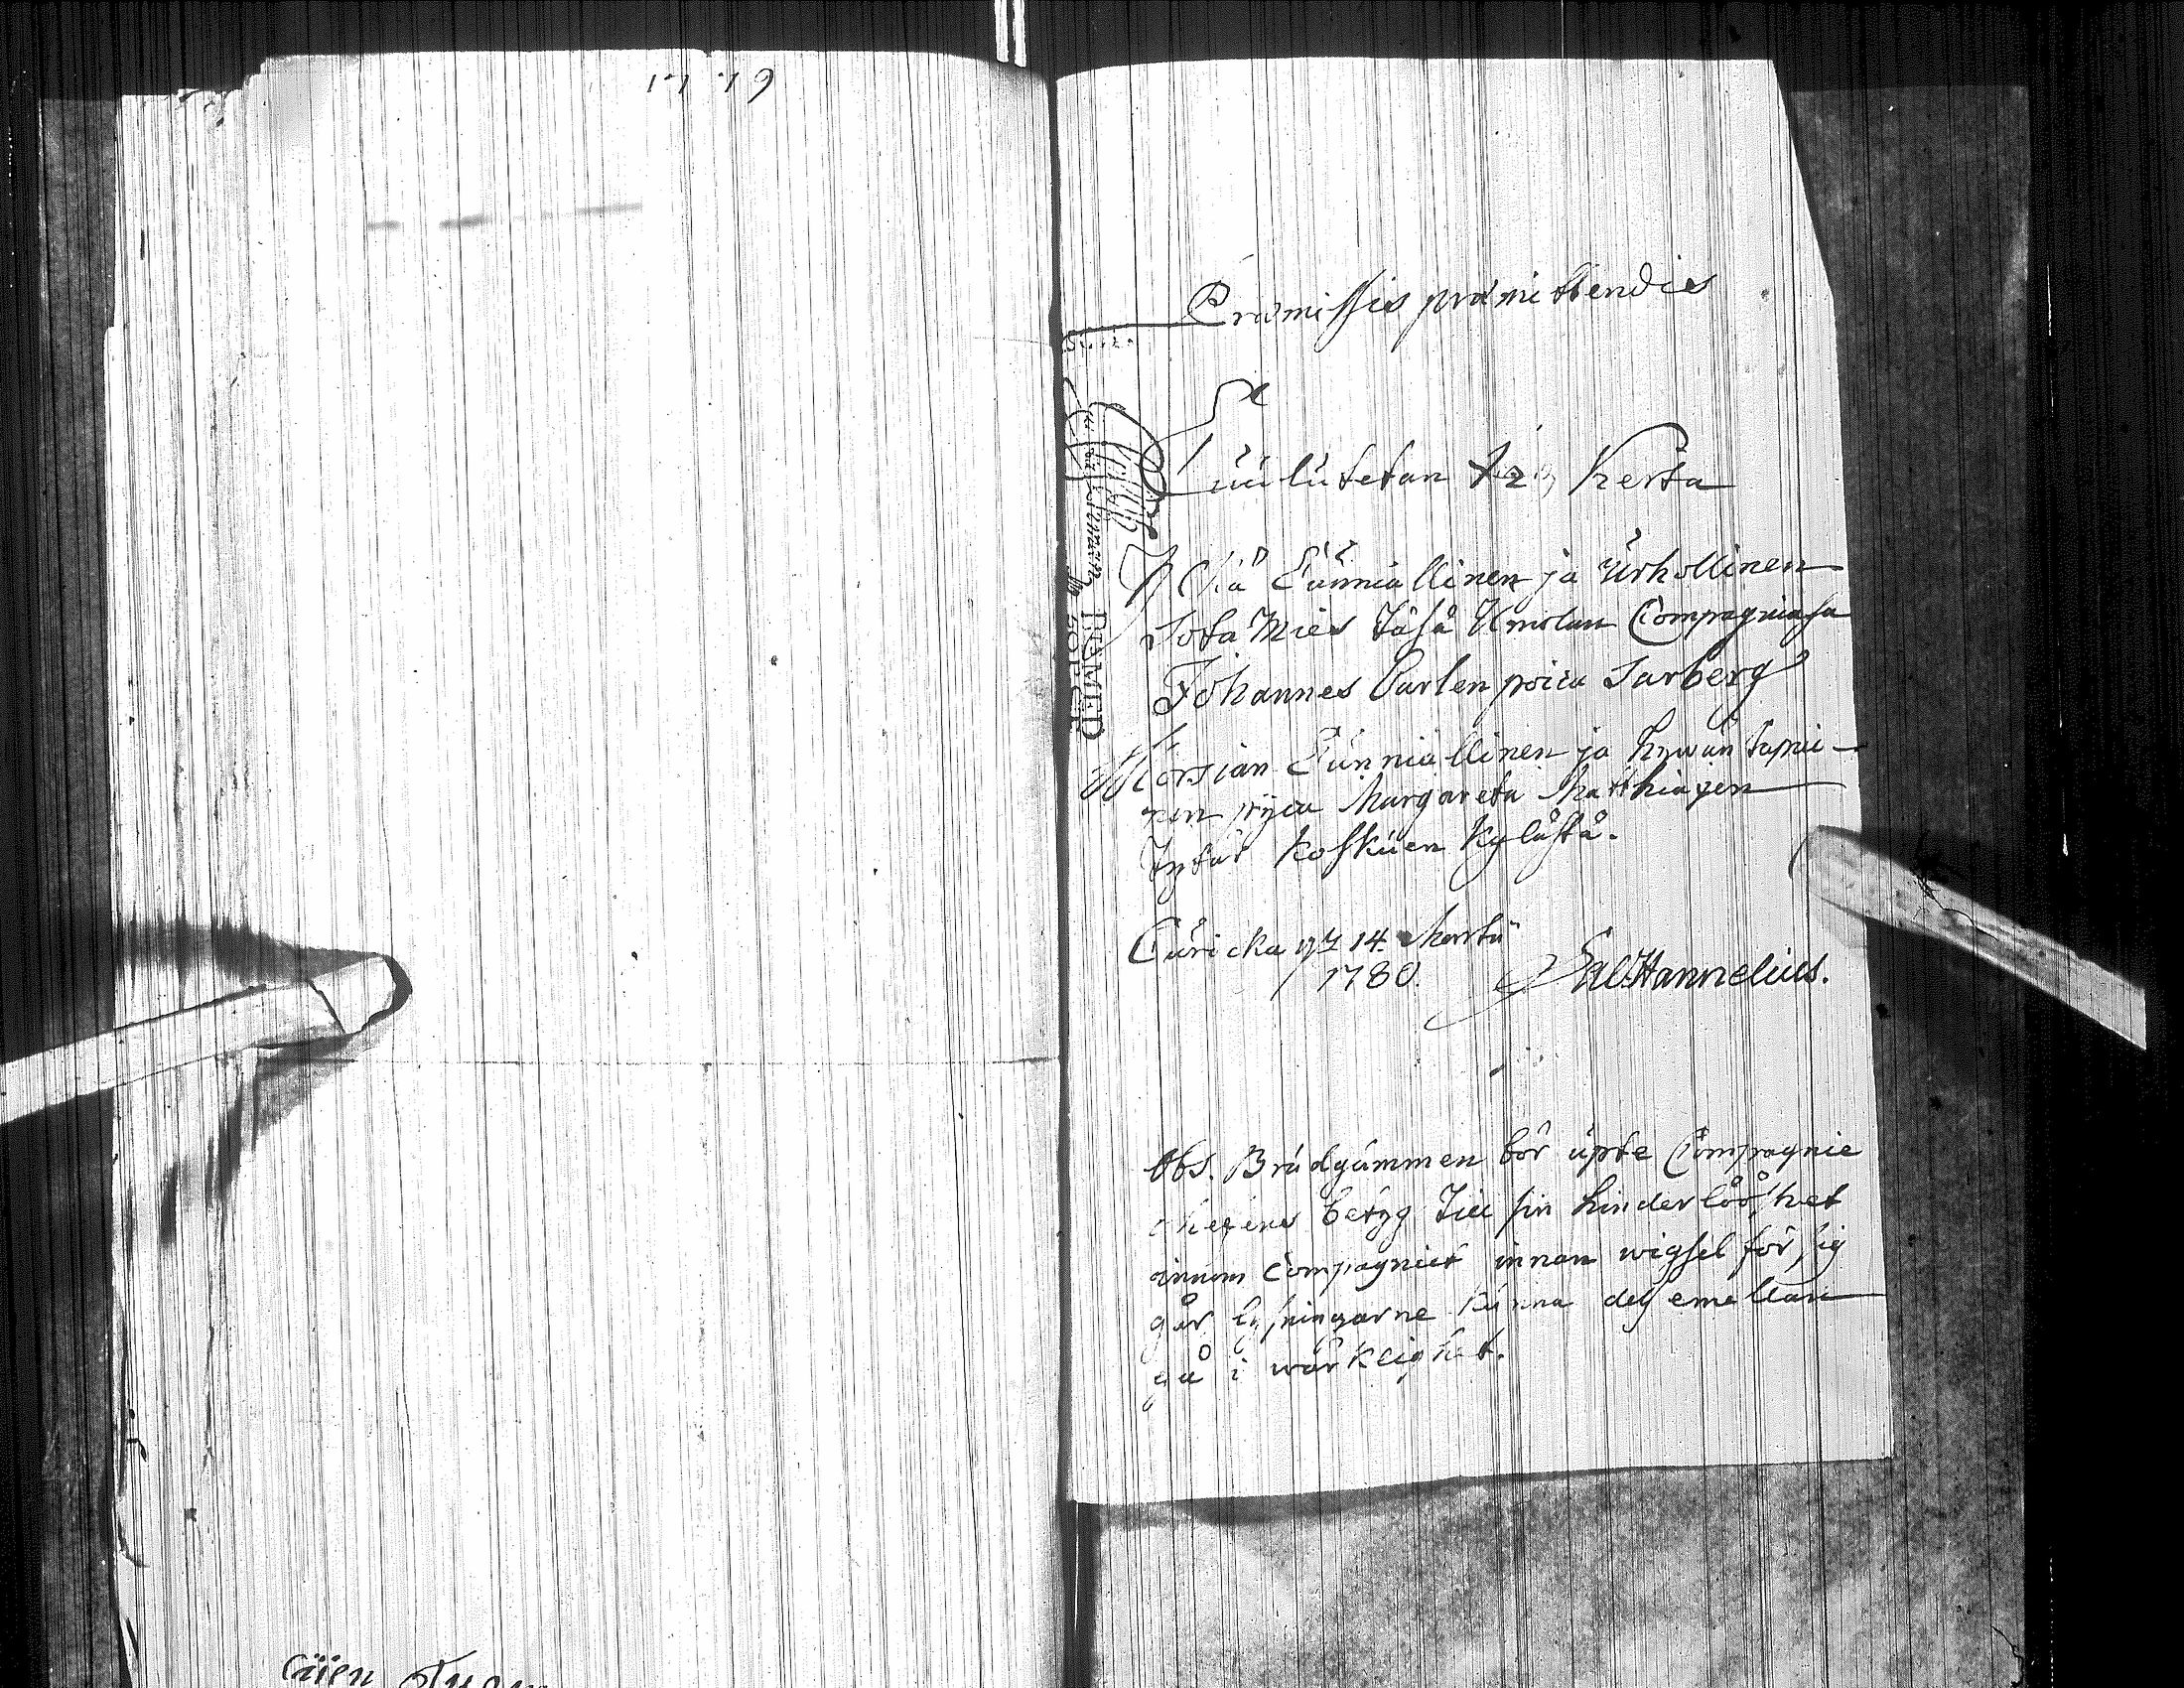 1779
Præmissis præmittendis
Cuulutetan 1. 2. Kerta
Ylkä Cunniallinen ja Urhollinen
Sota Mies täsä Umolan Compagniasa
Johannes Carlen poica Sarberg
Morsian Cunniallinen ja hywän tapai-
nen pijca Margareta Matthiaxen
tytär Koskuen Kylästä.
Cauricka ptg 14. Martii
1780. Sal: Hannelius.
Obs. Brudgummen bör upte Compagnie
chefens betyg till sin hinderlööshet
innom Compagniet innan wigsel för sig
går lysningarne kunna dess emellan
gå i wärklighet.